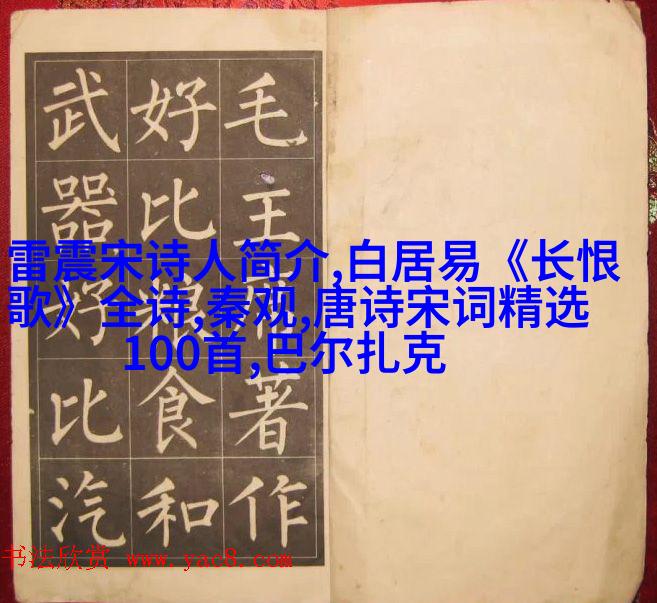 毛主著作
好比食和
武器好比汽
雷震宋诗人简介,白居易《长恨
歌》全诗,秦观,唐诗宋词精选
100首,巴尔扎克
书法欣赏 www.yac8.com